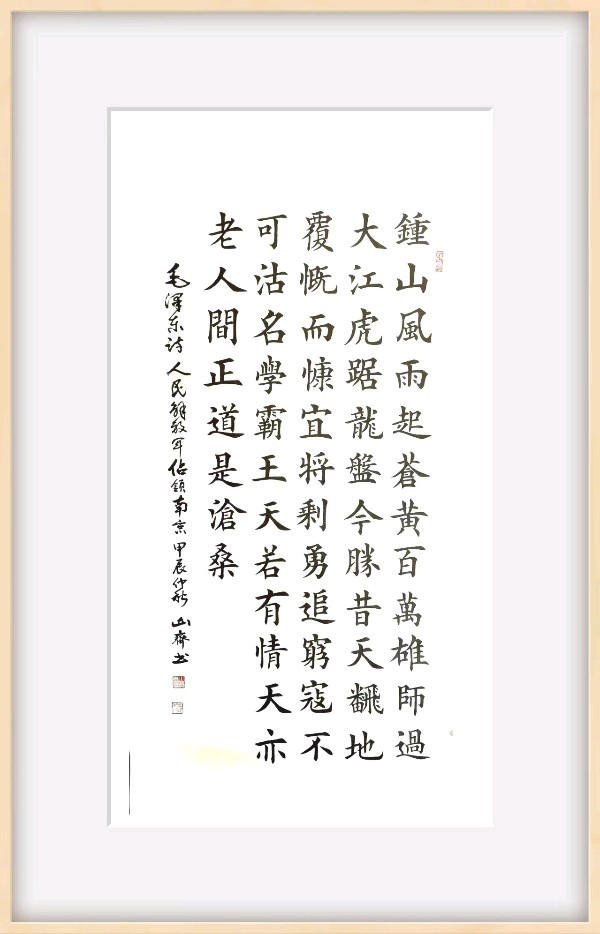 鍾山風雨起蒼黃百萬雄師過
大江虎踞龍盤今勝昔天翻地
覆慨而慷宜將剩勇追窮寇不
可沽名學霸王天若有情天亦
老人間正道是滄桑
毛澤东诗 人民解放军佔領南京 甲辰仲秋 齊书